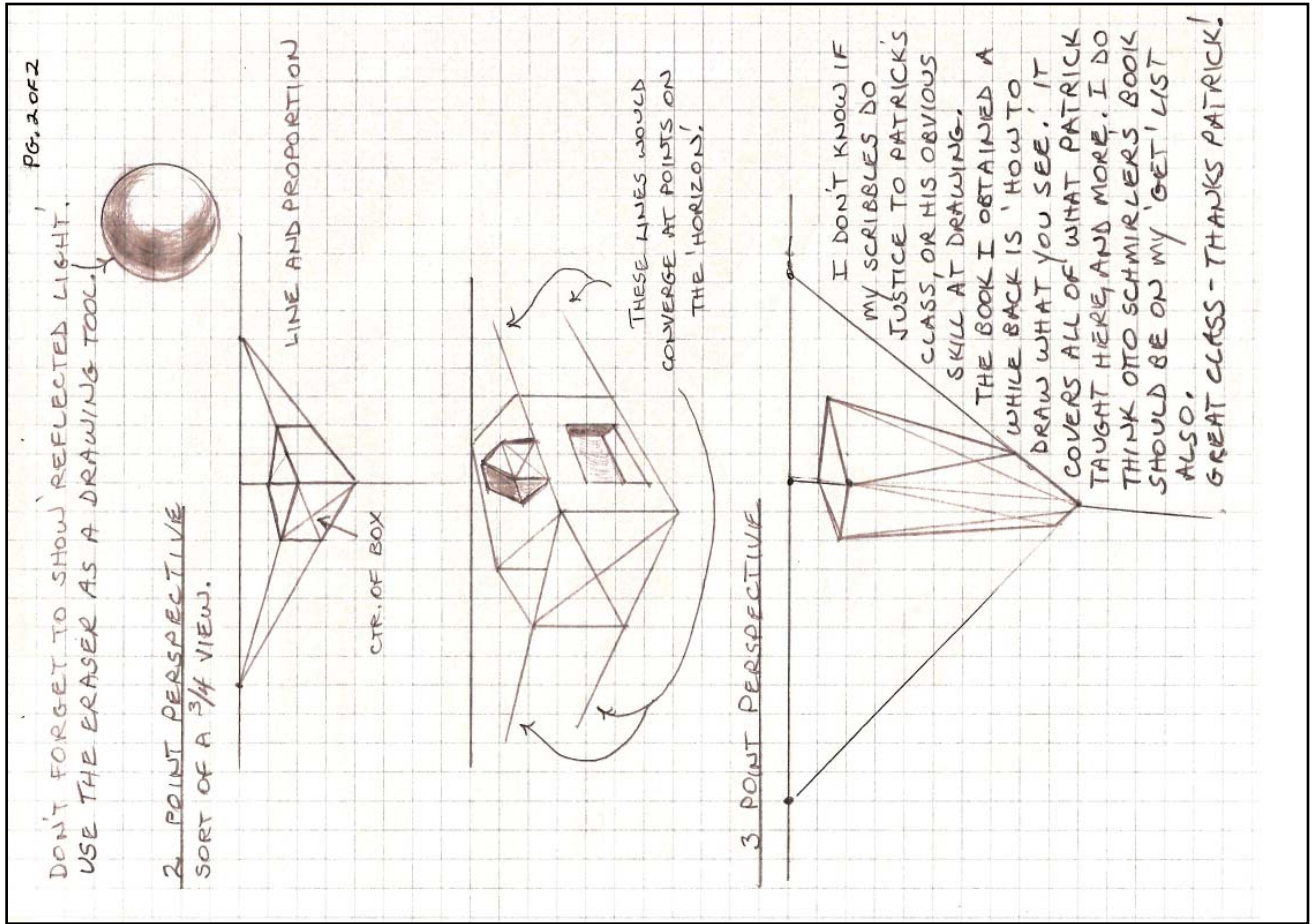 PG. 2 OF 2
DON'T FORGET TO SHOW 'REFLECTED LIGHT.'
USE THE ERASER AS A DRAWING TOOL!
2 POINT PERSPECTIVE
SORT OF A 3/4 VIEW.
LINE AND PROPORTION
CTR. OF BOX
THESE LINES WOULD
CONVERGE AT POINTS ON
THE 'HORIZON.'
3 POINT PERSPECTIVE
I DON'T KNOW IF
MY SCRIBBLES DO
JUSTICE TO PATRICK'S
CLASS, OR HIS OBVIOUS
SKILL AT DRAWING.
THE BOOK I OBTAINIED A
WHILE BACK IS 'HOW TO
DRAW WHAT YOU SEE.' IT
COVERS ALL OF WHAT PATRICK
TAUGHT HERE, AND MORE. I DO
THINK OTTO SCHMIRLERS BOOK
SHOULD BE ON MY 'GET' LIST
ALSO.
GREAT CLASS - THANKS PATRICK!